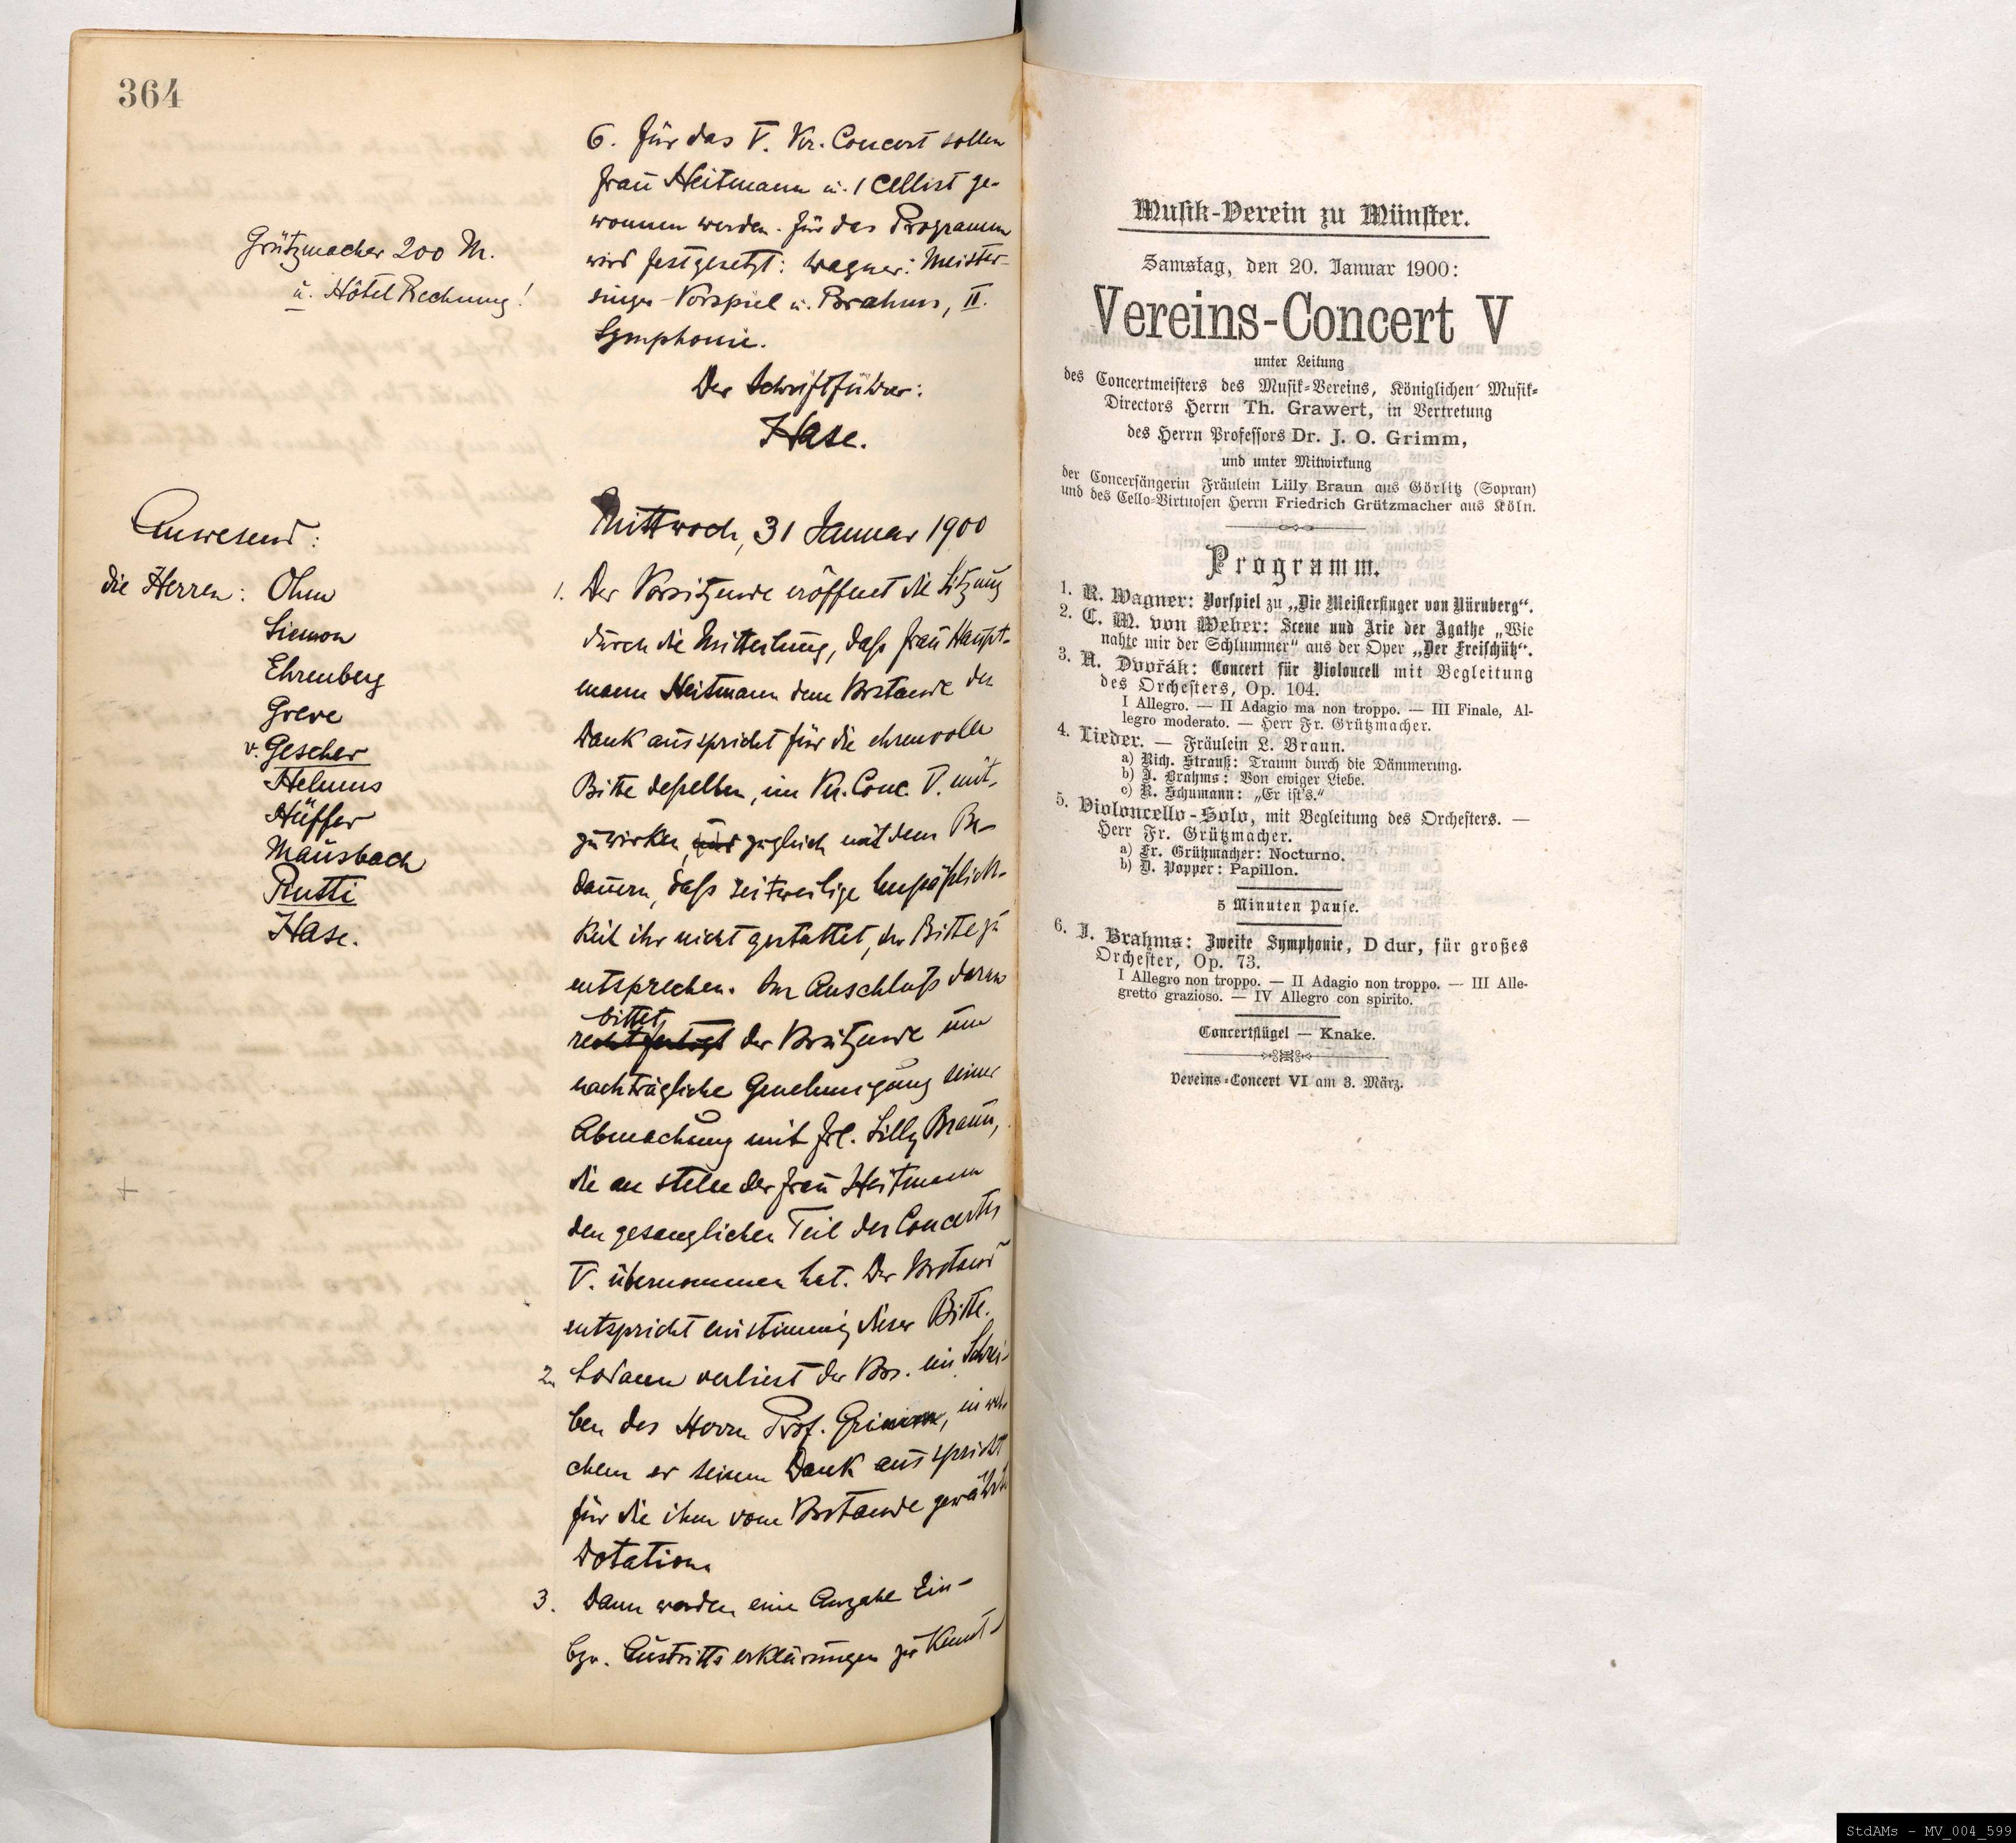 364
6. Für das V. Ver. Concert sollen
Frau Heitmann u. 1 Cellist ge-
wonnen werden. Für das Programm
wird festgesetzt: Wagner: Meister-
singer-Vorspiel u. Brahms, II.
Symphonie.
Der Schriftführer:
Hase.
Grützmacher 200 M.
u. Hôtel Rechnung!
Anwesend:
die Herren: Ohm
Siemon
Ehrenberg
Greve
v. Gescher
Helmus
Hüffer
Mausbach
Rutti
Hase.
Mittwoch, 31 Januar 1900
1. Der Vorsitzende eröffnet die Sitzung
durch die Mitteilung, daß Frau Haupt-
mann Heitmann dem Vorstande den
Dank ausspricht für die ehrenvolle
Bitte desselben, im Ver. Conc. V. mit-
zuwirken, und zugleich mit dem Be-
dauern, daß zeitweilige Unpäßlich-
keit ihr nicht gestattet, der Bitte zu
entsprechen. Im Anschluß daran
bittet
rechtfertigt der Vorsitzende um
nachträgliche Genehmigung seiner
Abmachung mit Frl. Lilly Braun,
die an Stelle der Frau Heitmann
den gesanglichen Teil des Concertes
V. übernommen hat. Der Vorstand
entspricht einstimmig dieser Bitte.
2. Sodann verliest der Vors. ein Schrei-
ben des Herrn Prof. Grimm, in wel-
chem er seinen Dank ausspricht
für die ihm vom Vorstande gewährte
Dotation.
3. Dann werden eine Anzahl Ein-
bzw. Austrittserklärungen zur Kennt-
Musik-Verein zu Münster.
Samstag, den 20. Januar 1900:
Vereins-Concert V
unter Leitung
des Concertmeisters des Musik-Vereins, Königlichen Musik-
Directors Herrn Th. Grawert, in Vertretung
des Herrn Professors Dr. J. O. Grimm,
und unter Mitwirkung
der Concersängerin Fräulein Lilly Braun aus Görlitz (Sopran)
und des Cello-Virtuosen Herrn Friedrich Grützmacher aus Köln.
Programm.
1. R. Wagner: Vorspiel zu „Die Meistersinger von Nürnberg“.
2. C. M. von Weber: Scene und Arie der Agathe „Wie
nahte mir der Schlummer“ aus der Oper „Der Freischütz“.
3. A. Dvořák: Concert für Violoncell mit Begleitung
des Orchesters, Op. 104.
I Allegro. — II Adagio ma non troppo. — III Finale, Al-
legro moderato. — Herr Fr. Grützmacher.
4. Lieder. — Fräulein L. Braun.
a) Rich. Strauß: Traum durch die Dämmerung.
b) J. Brahms: Von ewiger Liebe.
c) R. Schumann: „Er ist's.“
5. Violoncello-Solo, mit Begleitung des Orchesters. —
Herr Fr. Grützmacher.
a) Fr. Grützmacher: Nocturno.
b) D. Popper: Papillon.
5 Minuten Pause.
6. J. Brahms: Zweite Symphonie, D dur, für großes
Orchester, Op. 73.
I Allegro non troppo. — II Adagio non troppo. — III Alle-
gretto grazioso. — IV Allegro con spirito.
Concertflügel — Knake.
Vereins-Concert VI am 3. März.
StdAMs - MV_004_599